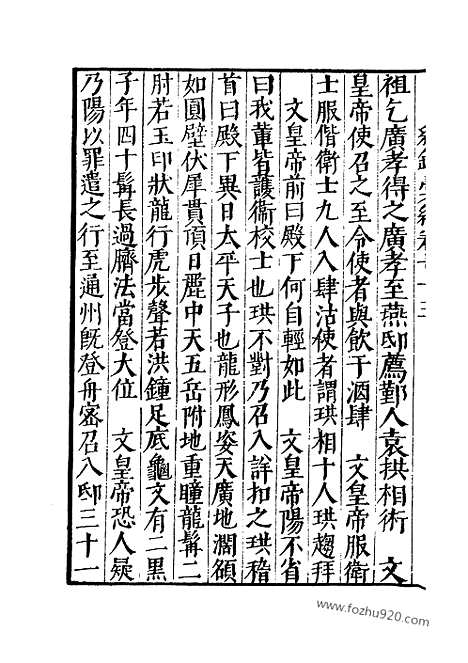 祖乞廣孝得之廣孝至燕邸薦鄞人袁拱相術　文
皇帝使召之至令使者與飲于酒肆　文皇帝服衛
士服偕衛士九人入肆沽使者謂珙相十人珙趨拜
文皇帝前曰殿下何自輕如此　文皇帝陽不省
曰我輩皆護衛校士也珙不對乃召入詳扣之珙稽
首曰殿下異日太平天子也龍形鳳姿天廣地濶額
如圓璧伏犀貫頂日麗中天五岳附地重瞳龍髯二
肘若玉印狀龍行虎步聲若洪鐘足底龜文有二黑
子年四十髯長過臍法當登大位　文皇帝恐人疑
乃陽以罪遣之行至通州旣登舟密召入邸三十一
www.fozhu920.com